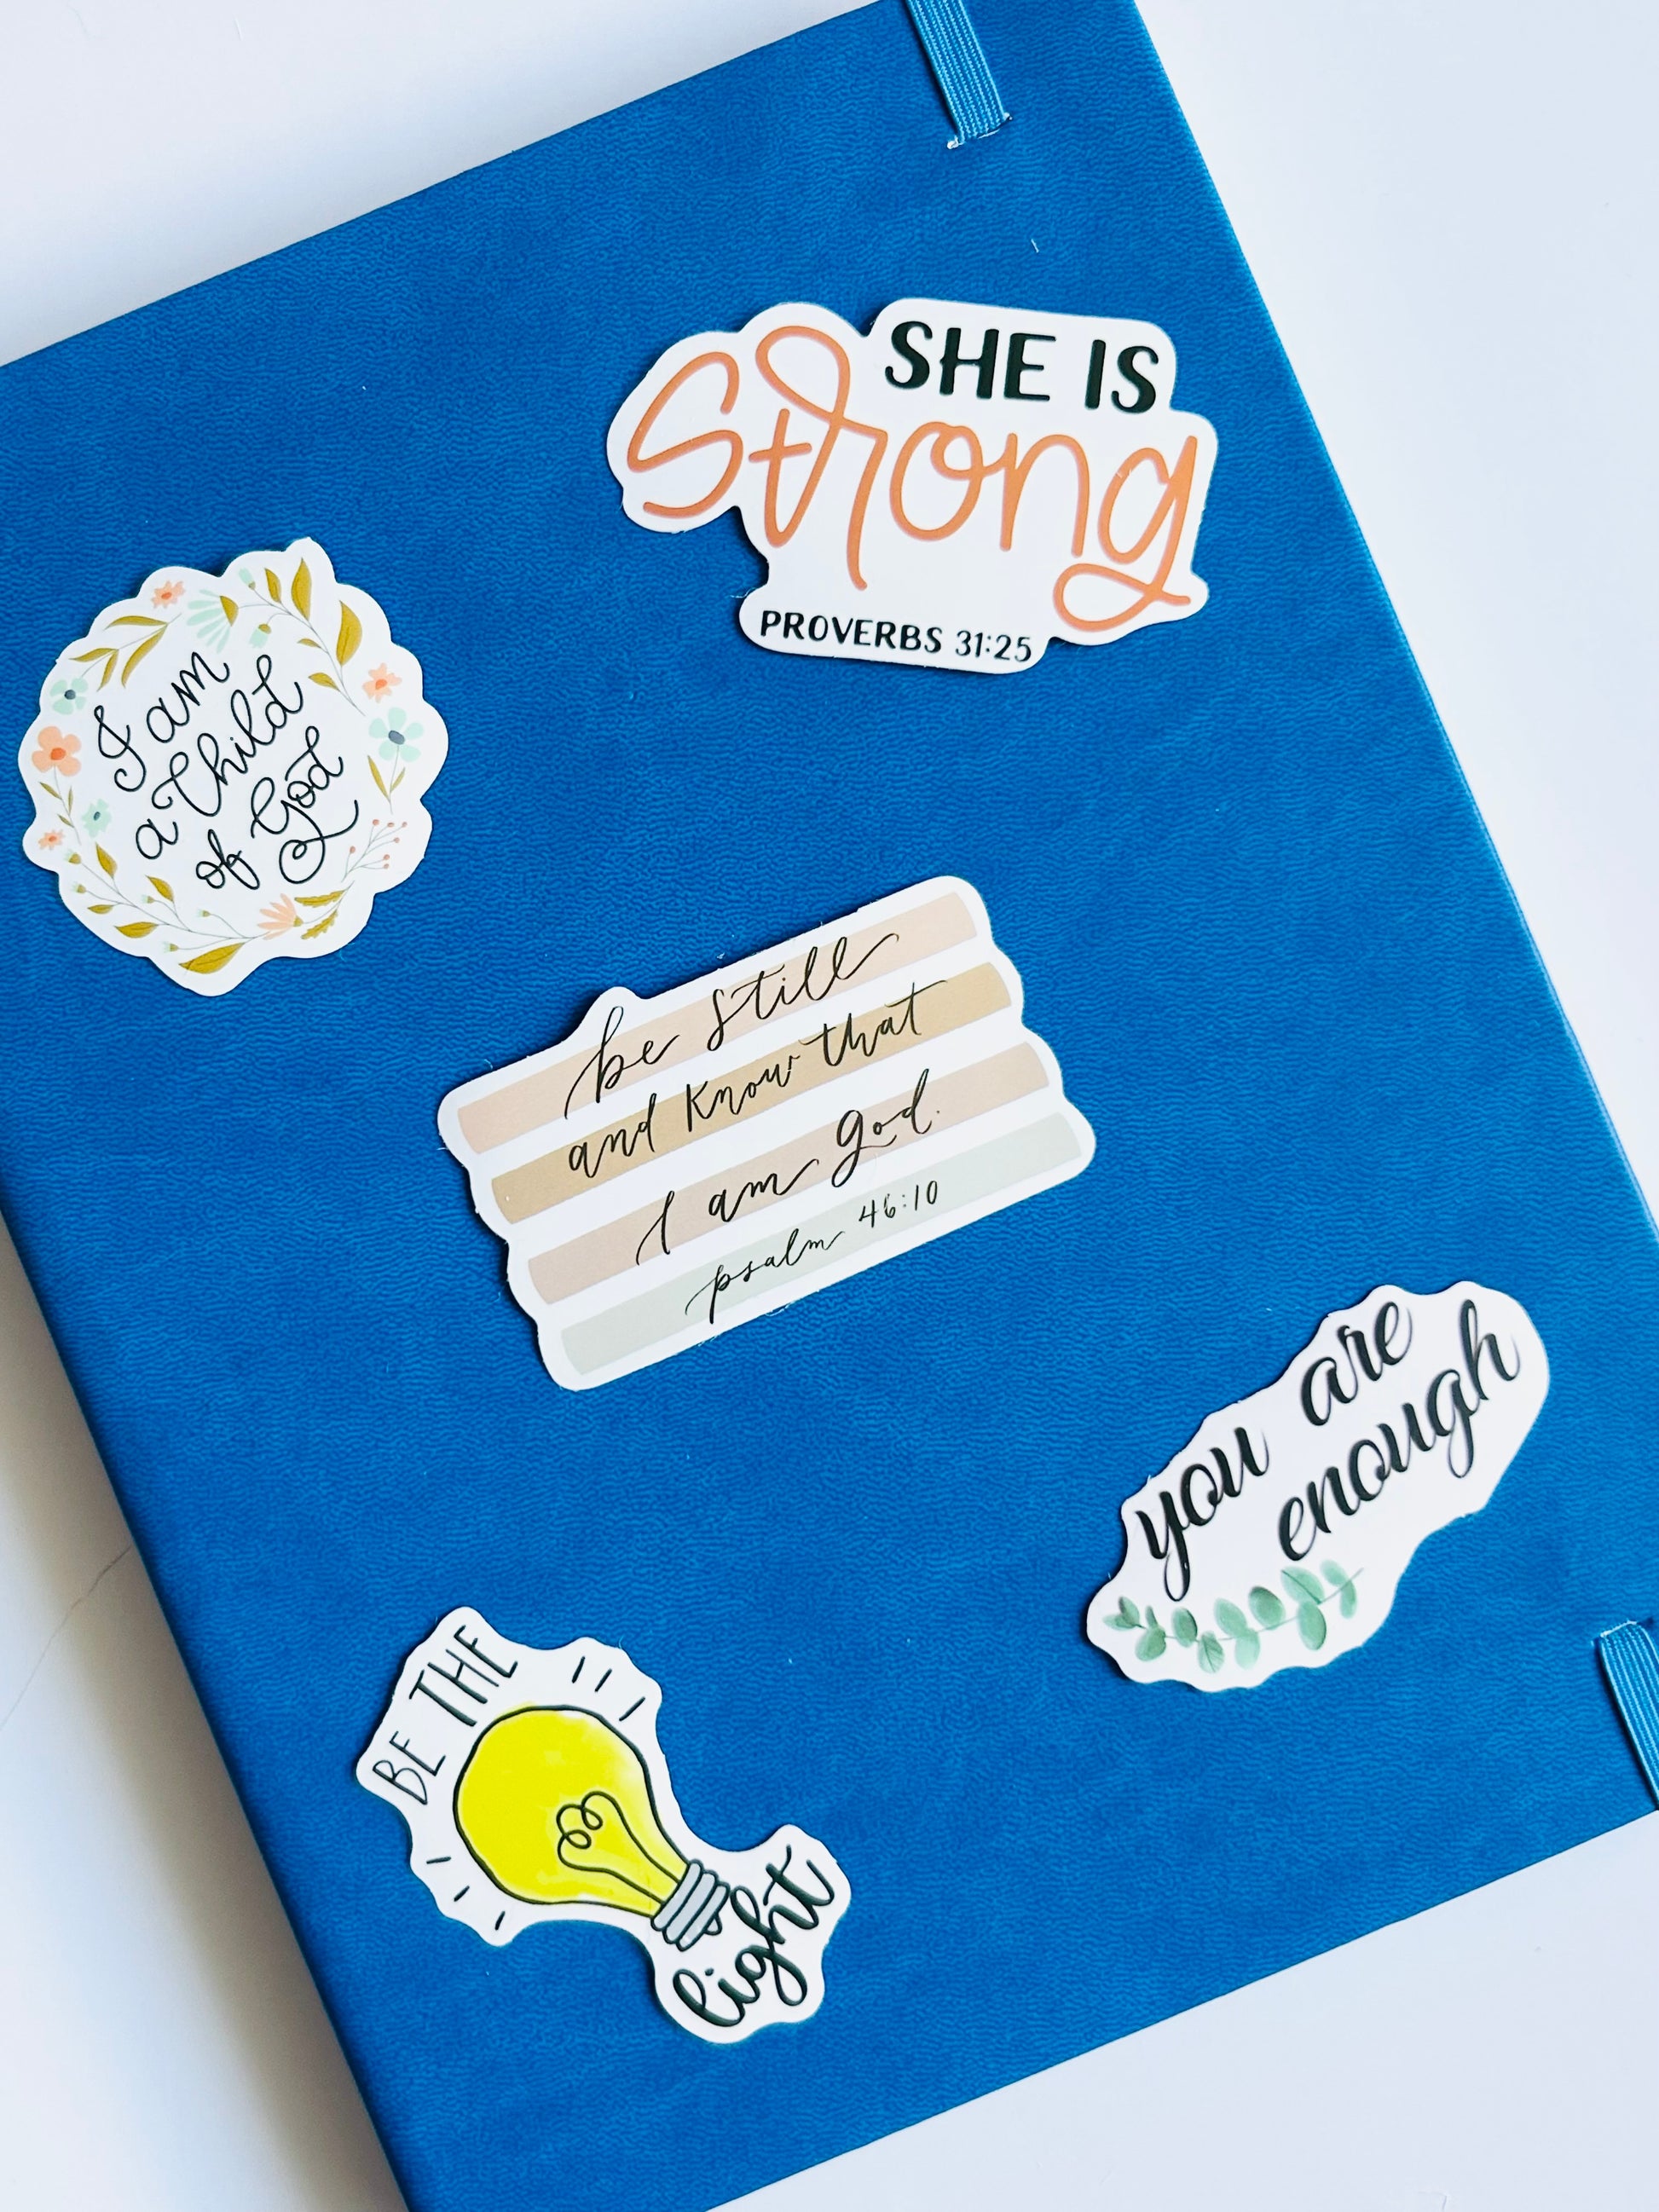 SHE IS
strong
PROVERBS 31:25
I am
a Child
of God
be still
and know that
I am God.
psalm 46:10
you are
enough
BE THE
light